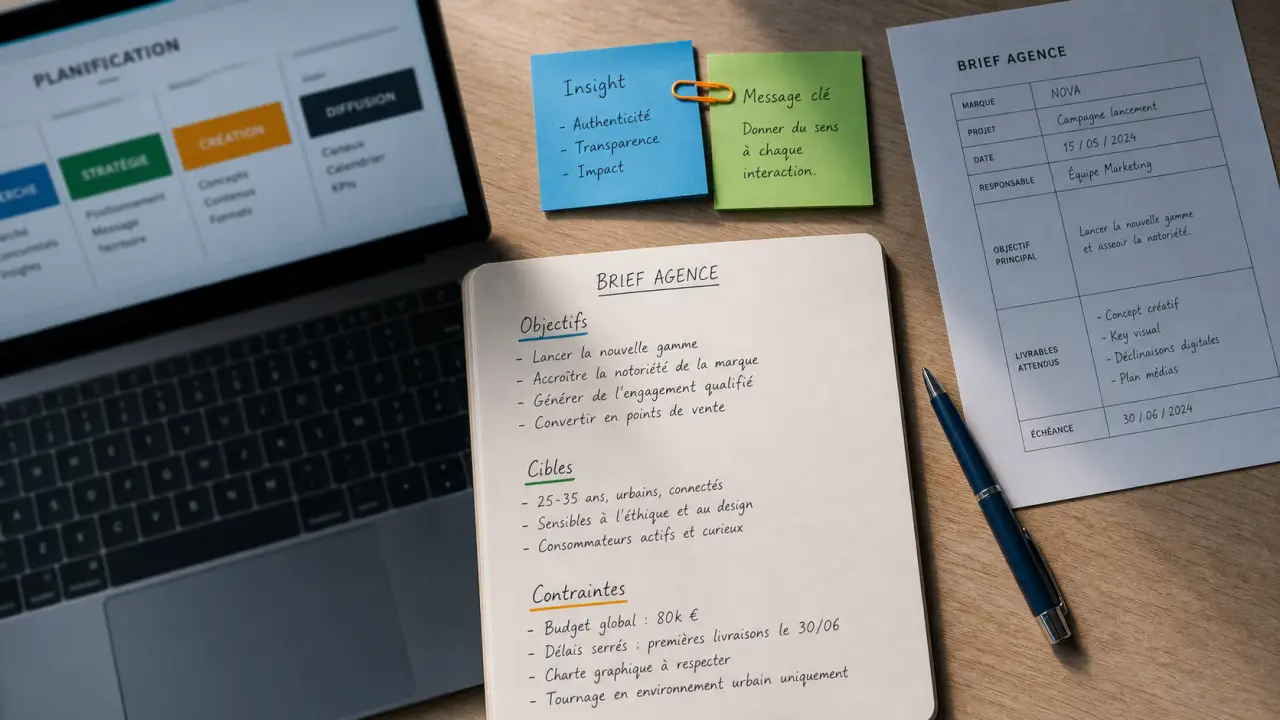 PLANIFICATION
ERCHE
STRATÉGIE
Positionnement
Message
Territoire
CRÉATION
Concepts
Contenus
Formats
DIFFUSION
Canaux
Calendrier
KPIs
Insight
- Authenticité
- Transparence
- Impact
Message clé
Donner du sens
à chaque
interaction.
BRIEF AGENCE
Objectifs
- Lancer la nouvelle gamme
- Accroître la notoriété de la marque
- Générer de l'engagement qualifié
- Convertir en points de vente
Cibles
- 25-35 ans, urbains, connectés
- Sensibles à l'éthique et au design
- Consommateurs actifs et curieux
Contraintes
- Budget global : 80k €
- Délais serrés : premières livraisons le 30/06
- Charte graphique à respecter
- Tournage en environnement urbain uniquement
BRIEF AGENCE
MARQUE NOVA
PROJET Campagne lancement
DATE 15 / 05 / 2024
RESPONSABLE Équipe Marketing
OBJECTIF PRINCIPAL
Lancer la nouvelle gamme
et asseoir la notoriété.
LIVRABLES ATTENDUS
- Concept créatif
- Key visual
- Déclinaisons digitales
- Plan médias
ÉCHÉANCE 30 / 06 / 2024